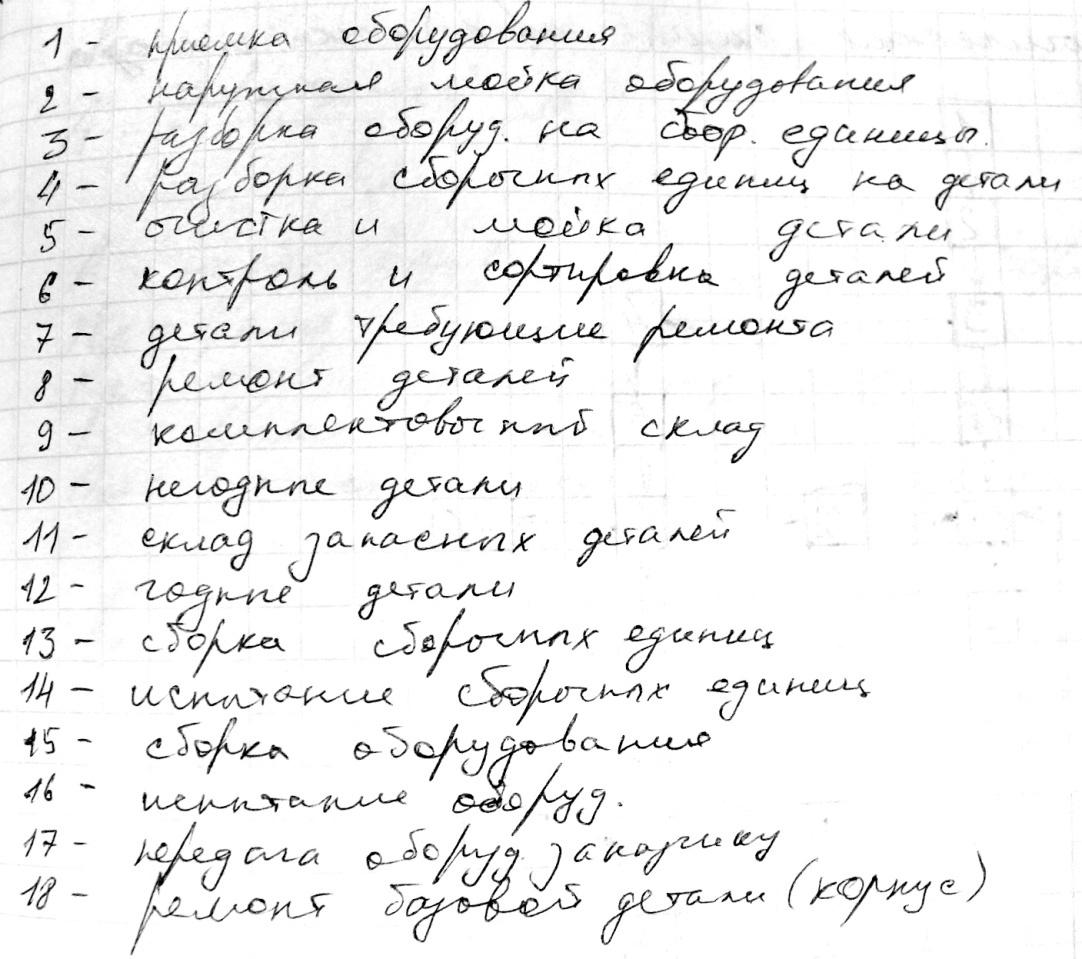 1 - приемка оборудования
2 - наружная мойка оборудования
3 - разборка оборуд. на сбор. единицы.
4 - разборка сборочных единиц на детали
5 - очистка и мойка детали
6 - контроль и сортировка деталей
7 - детали требующие ремонта
8 - ремонт деталей
9 - комплектовочный склад
10 - негодные детали
11 - склад запасных деталей
12 - годные детали
13 - сборка сборочных единиц
14 - испытание сборочных единиц
15 - сборка оборудования
16 - испытание оборуд.
17 - передача оборуд. заказчику
18 - ремонт базовой детали (корпус)